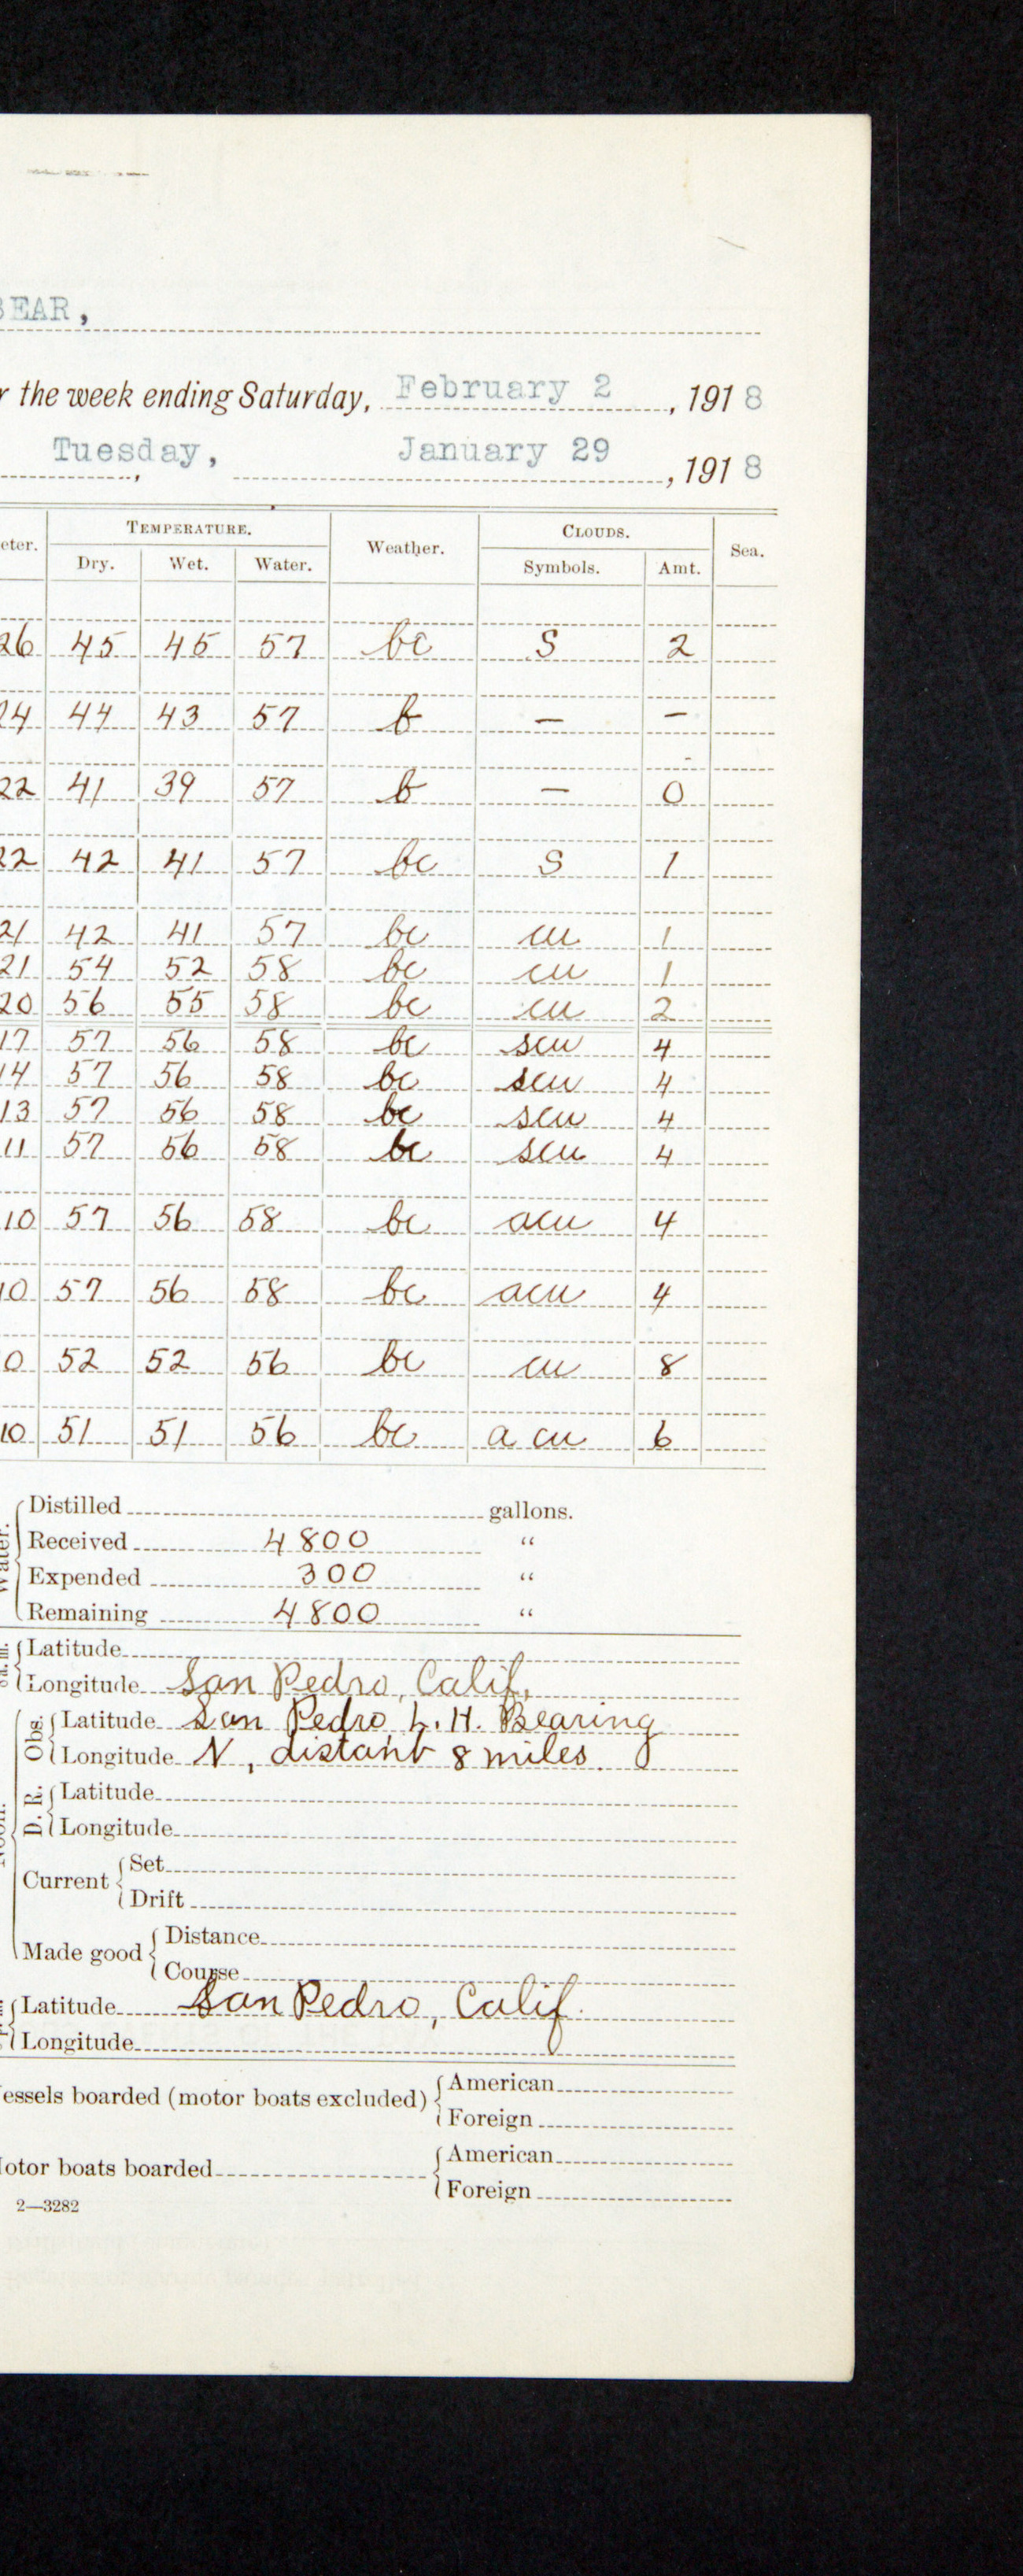 BEAR,
r the week ending Saturday, February 2, 1918
Tuesday, January 29, 1918
eter. TEMPERATURE. Weather. CLOUDS. Sea.
Dry. Wet. Water. Symbols. Amt.
26 45 45 57 bc S 2
24 44 43 57 b — —
22 41 39 57 b — 0
22 42 41 57 bc S 1
21 42 41 57 bc cu 1
21 54 52 58 bc cu 1
20 56 55 58 bc cu 2
17 57 56 58 bc scu 4
14 57 56 58 bc scu 4
13 57 56 58 bc scu 4
11 57 56 58 bc scu 4
10 57 56 58 bc acu 4
10 57 56 58 bc acu 4
0 52 52 56 bc cu 8
10 51 51 56 bc a cu 6
Water.
Distilled gallons.
Received 4800 "
Expended 300 "
Remaining 4800 "
Latitude
Longitude San Pedro, Calif.
Obs. Latitude San Pedro L. H. Bearing
Longitude N, distant 8 miles.
D. R. Latitude
Longitude
Current Set
Drift
Made good Distance
Course
Latitude San Pedro, Calif.
Longitude
essels boarded (motor boats excluded) American
Foreign
otor boats boarded American
Foreign
2—3282